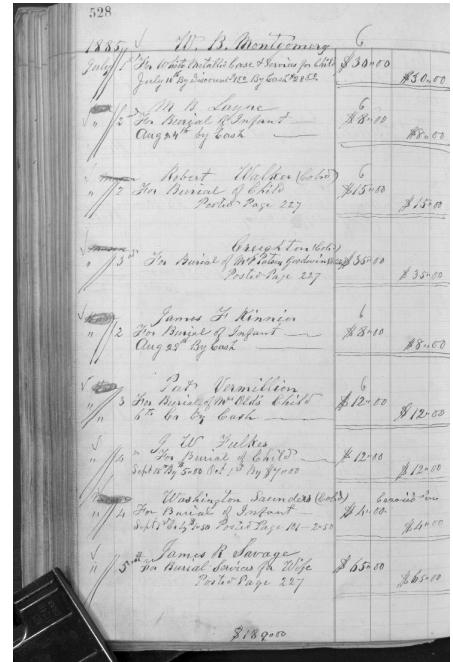 528
1885 W. B. Montgomery 6
July 1st For White Metallic Case & Services for Child $30.00
July 11th By Discount By Cash $30.00
M B Layne 6
" 2nd For Burial of Infant $8.00
Aug 24th by Cash $8.00
Robert Walker (Col'd) 6
" 2 For Burial of Child $15.00
Posted Page 227 $15.00
Creighton (Col'd)
" 3rd For Burial of Mrs Patsy Goodwin $35.00
Posted Page 227 $35.00
James F Kinnier 6
" 2 For Burial of Infant $8.00
Aug 25th By Cash $8.00
Pat Vermillion 6
" 3 For Burial of Mrs Old's Child $12.00
6th Cr by Cash $12.00
J W Fulkes
" 4 For Burial of Child $12.00
Sept 15th By 5.00 Oct 1st By $7.00 $12.00
Washington Saunders (Col'd)
" 4 For Burial of Infant $4.00
Posted Page 101 - 2.50 $4.00
James R Savage
" 5th For Burial Services for Wife $65.00
Posted Page 227 $65.00
$189.00